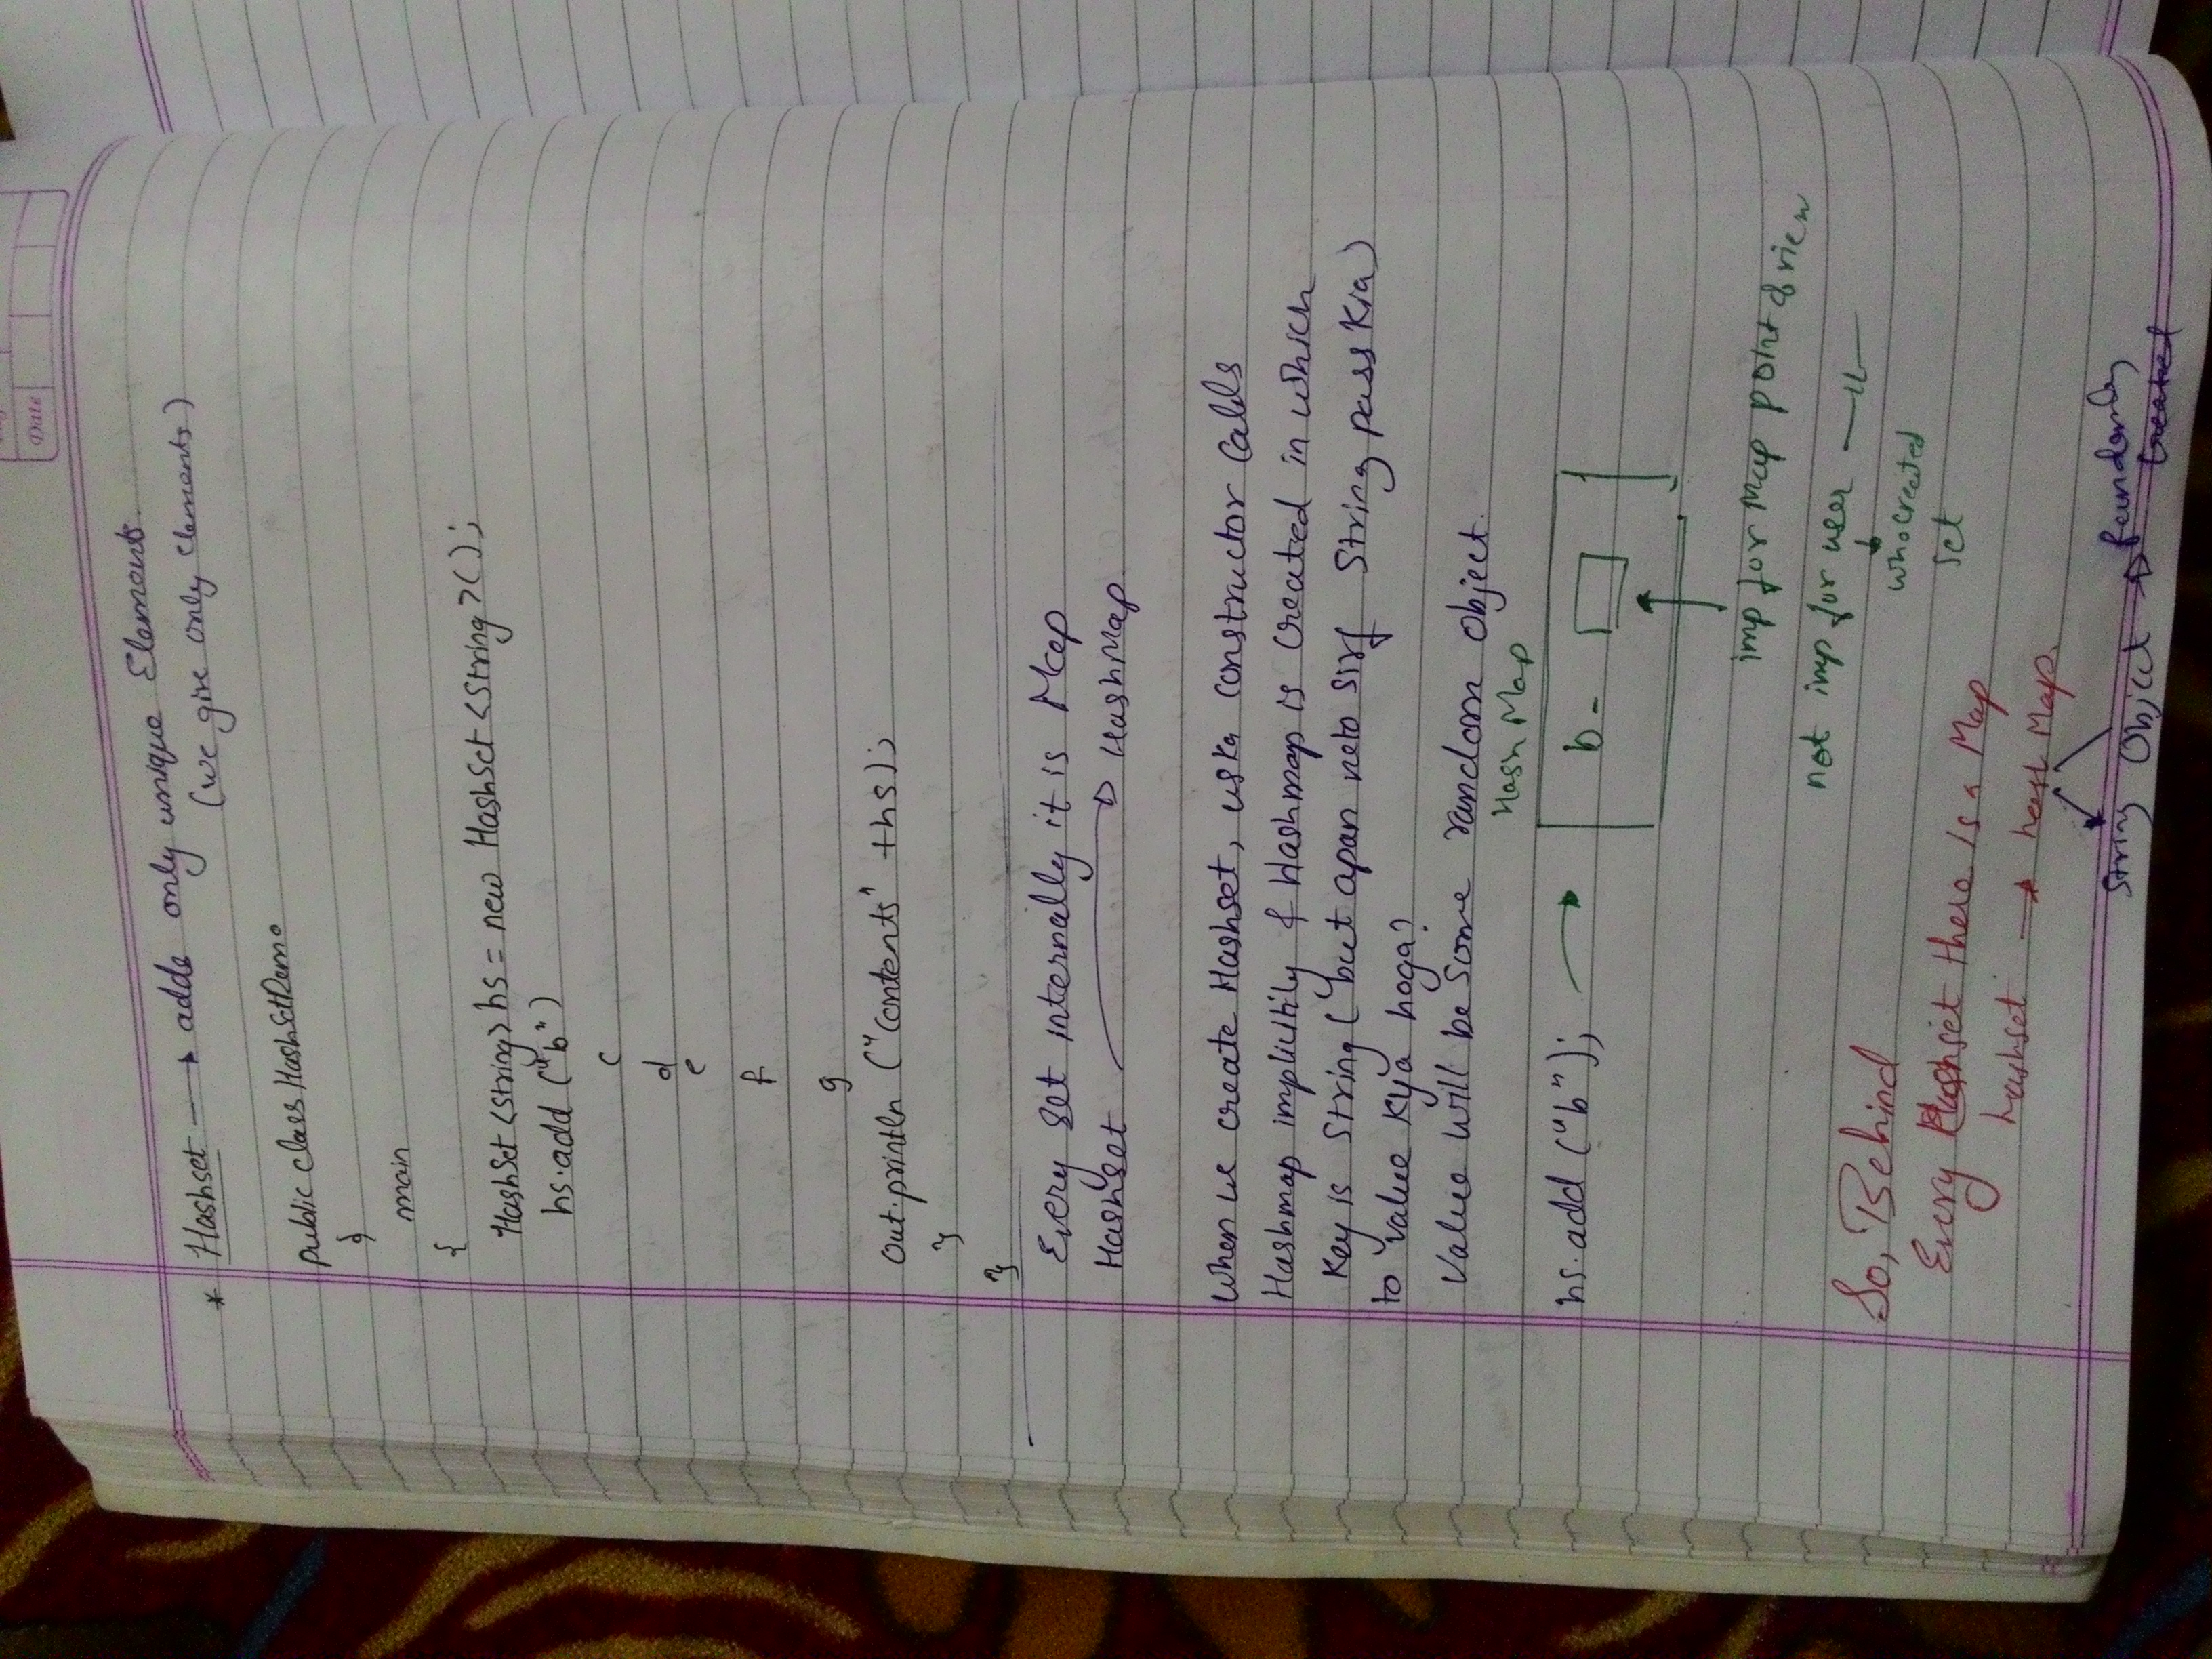 Date
* Hashset → adds only unique Elements.
(we give only elements)
public class HashSetDemo
{
main
{
HashSet <String> hs = new HashSet <String>();
hs.add ("b")
c
d
e
f
g
out.println ("Contents" +hs);
}
}
Every Set internally it is Map
Hashset → HashMap.
When we create Hashset, uska constructor calls
Hashmap implicitily & Hashmap is created in which
Key is String (but apan neto sirf String pass kia)
to value kya hoga?
Value will be some random object.
Hash Map
hs.add ("b"); →
b -
imp for Map point of view
not imp for user —11—
who created
set
So, Behind
Every Hashset there is a Map
hashset → hash Map.
String Object → Randomly
Created